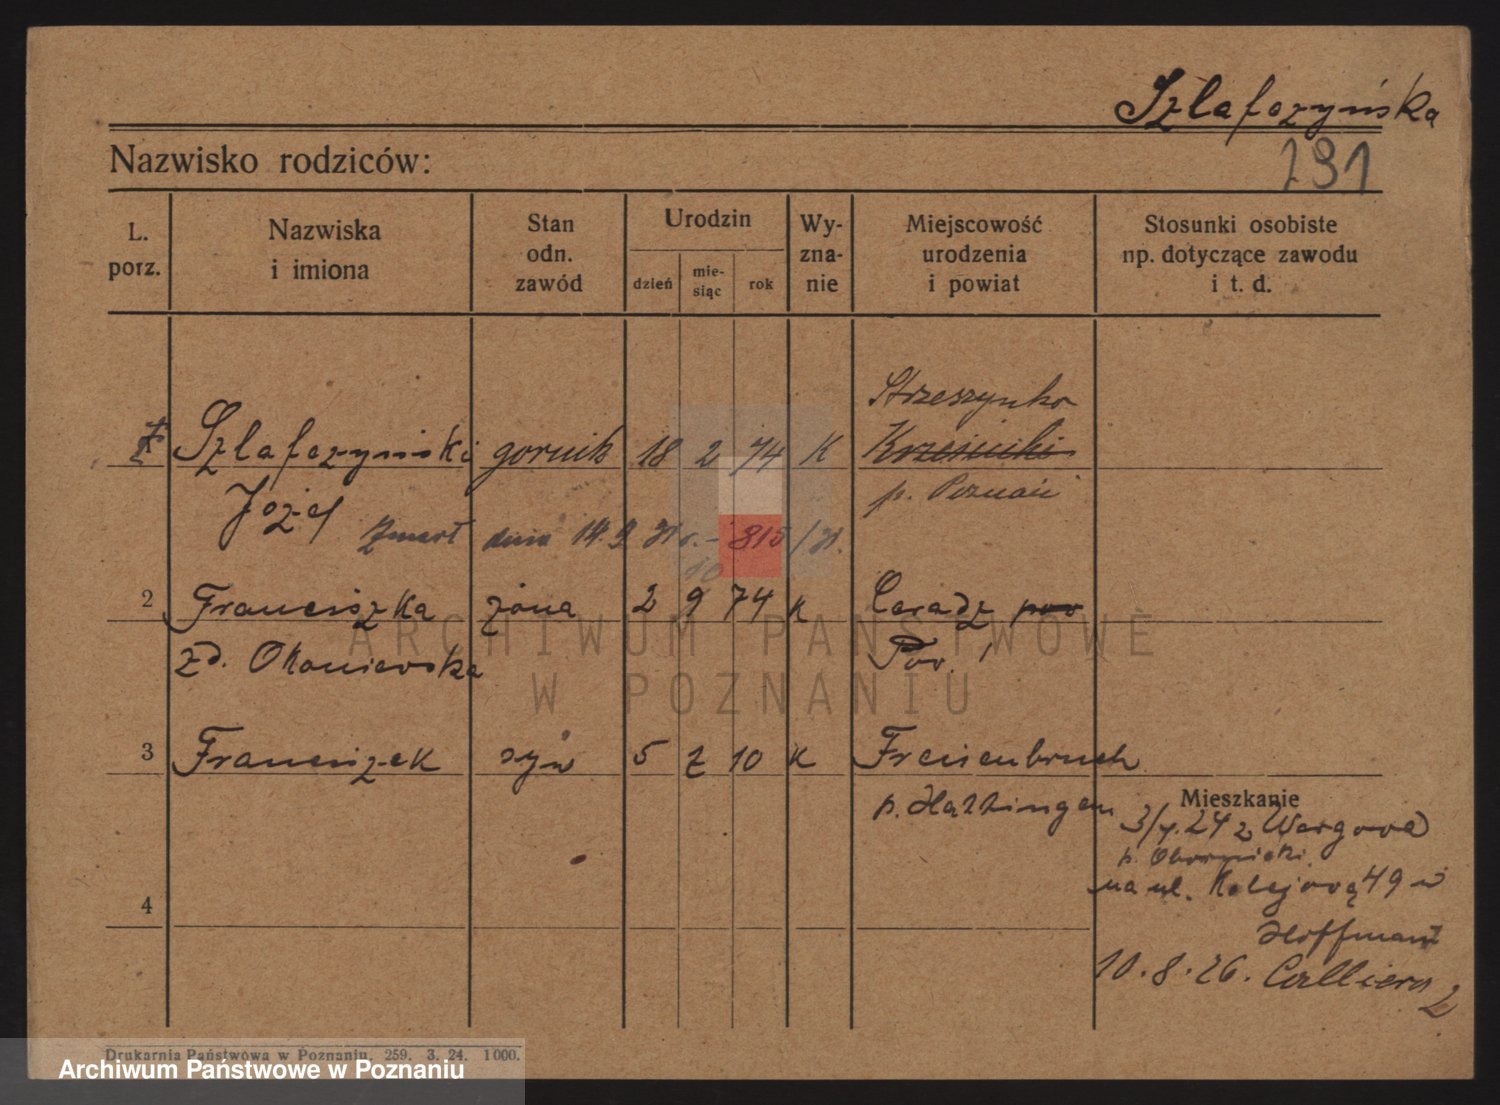 Szlafczyńska
Nazwisko rodziców:
291
L. porz.
Nazwiska i imiona
Stan odn. zawód
Urodzin
dzień
mie- siąc
rok
Wy- zna- nie
Miejscowość urodzenia i powiat
Stosunki osobiste np. dotyczące zawodu i t. d.
Strzeszynko
Szlafczyński gornik 18 2 74 K
p. Poznań
Józef zmarł dnia 14. 9 31 r. - 815/31.
10
2 Franciszka żona 2 9 74 K Ceradz pow
zd. Okoniewska Pow.
3 Franciszek syn 5 2 10 K Freisenbruch
p. Hattingen
Mieszkanie
3/7.24 z Wargowa
p. Obornicki
na ul. Kolejową 49 w
Hoffmann
4
10.8.26. Calliera 2
Drukarnia Państwowa w Poznaniu. 259. 3. 24. 1000.
ARCHIWUM PAŃSTWOWE
W POZNANIU
Archiwum Państwowe w Poznaniu